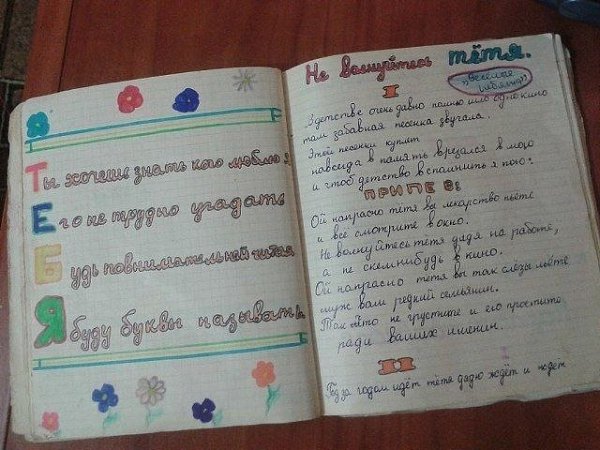 Ты хочешь знать кого люблю я
Его не трудно угадать
Будь повнимательней читая
Я буду буквы называть
Не волнуйтесь тётя.
"Весёлые ребята"
I
В детстве очень давно помню шло одно кино
там забавная песенка звучала.
Этой песенки куплет
навсегда в память врезался в мою
и чтоб детство вспомнить я пою:
ПРИПЕВ:
Ой напрасно тётя вы лекарство пьёте
и всё смотрите в окно.
Не волнуйтесь тётя дядя на работе,
а не с кем нибудь в кино.
Ой напрасно тётя вы так слёзы льёте
муж ваш редкий семьянин.
Так что не грустите и его простите
ради ваших именин.
II
Год за годом идёт тётя дядю ждёт и ждёт